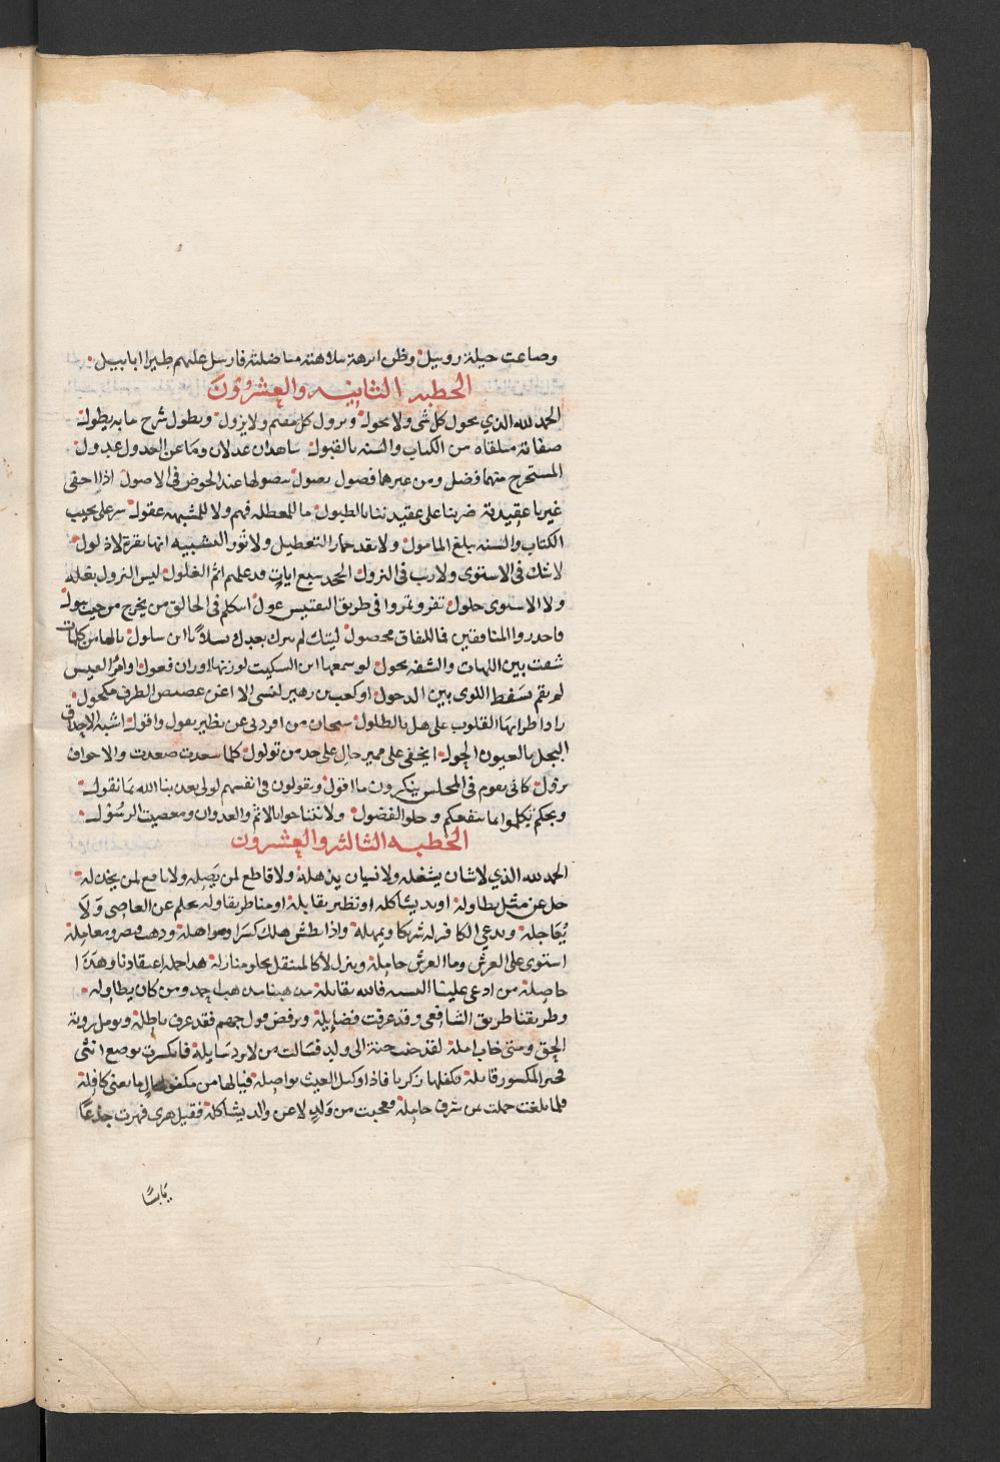 وضاعت حيلة روبيل وظن ابرهة فارسل عليهم طيرا ابابيل
الخطبه الثانيه والعشرون
الحمد لله الذي يحول كل شي ولا يحول ويزول كل مقيم ولا يزول ويطول شرح ما به يطول
صفاته متلقاه من الكتاب والسنه بالقبول شاهدان عدلان وما عن العدول عدول
المستخرج منهما فضل ومن غيرهما فصول نصول بنصولها عند الخوض في الاصول اذا احتمى
غيرنا عقيدته ضربنا على عقيدتنا بالطبول ما للمعطله فهم ولا للمشبهه عقول سر على نجيب
الكتاب والسنه تبلغ المامول ولا تقد حمار التعطيل ولا ثور التشبيه انها بقرة لا ذلول
لا شك في الاستوى ولا ريب في النزول الحد سبع ايات قد علمهم اثم الغلول ليس النزول بنقله
ولا الاستوى حلول تفرو تمروا في طريق التفتيش عول اتتكلم في الخالق من يخرج من حيث يبول
فاحدروا المنافقين فما للنفاق محصول ليتك لم تترك بعدك نسلا يا ابن سلول يالها من كلمات
شقت بين اللهات والشفه تجول لو سمعها ابن السكيت لوزنها اوزان فعول او امرؤ القيس
لم يقم بسقط اللوى بين الدخول او كعب بن زهير لنسى الا اغن غضيض الطرف مكحول
على هل بالطلول سبحان من افردني عن نظير يقول واقول اشبه الاحداق
النجل بالعيون الحول ايخفى على مميز حال على حد من تولول كلما سعدت صعدت والاحوال
تزول كاني بقوم في المجلس ينكرون ما اقول ويقولون في انفسهم لولا يعذبنا الله بما نقول
ويحكم تكلموا بما ينفعكم وخلوا الفضول ولا تتناجوا بالاثم والعدوان ومعصيت الرسول
الخطبه الثالثه والعشرون
الحمد لله الذي لا شان يشغله ولا نسيان يذهله ولا قاطع لمن يصله ولا نافع لمن يخذله
جل عن مثل يطاوله او ند يشاكله او نظير يقابله او مناظر يقاوله يحلم عن العاصي ولا
يعاجله ويدعي الكافر له شريكا ويمهله واذا بطش هلك كسرا وصواهله وذهب قيصر ومعاقله
استوى على العرش وما العرش حامله وينزل لا كالمنتقل تخلو منازله هذا جمله اعتقادنا وهذا
حاصله من ادعى علينا التشبيه فالله يقابله مذهبنا مذهب احمد ومن كان يطاوله
وطريقنا طريق الشافعي وقد عرفت فضايله ونرفض قول جهم فقد عرف باطله ونومل روية
الحق ومتى خاب امله لقد حنت حنة الى وليد فسالت من لا يرد سايله فانكسرت بوضع انثى
فجبر المكسور قابله فكفلها زكريا فاذا وكيل الغيث يواصله فيالها من مكفول ما يعنى كافله
فلما بلغت حملت بمن شرف حامله فعجبت من ولد لا عن والد يشاكله فقيل هزي فهزت جذعا
يابسا